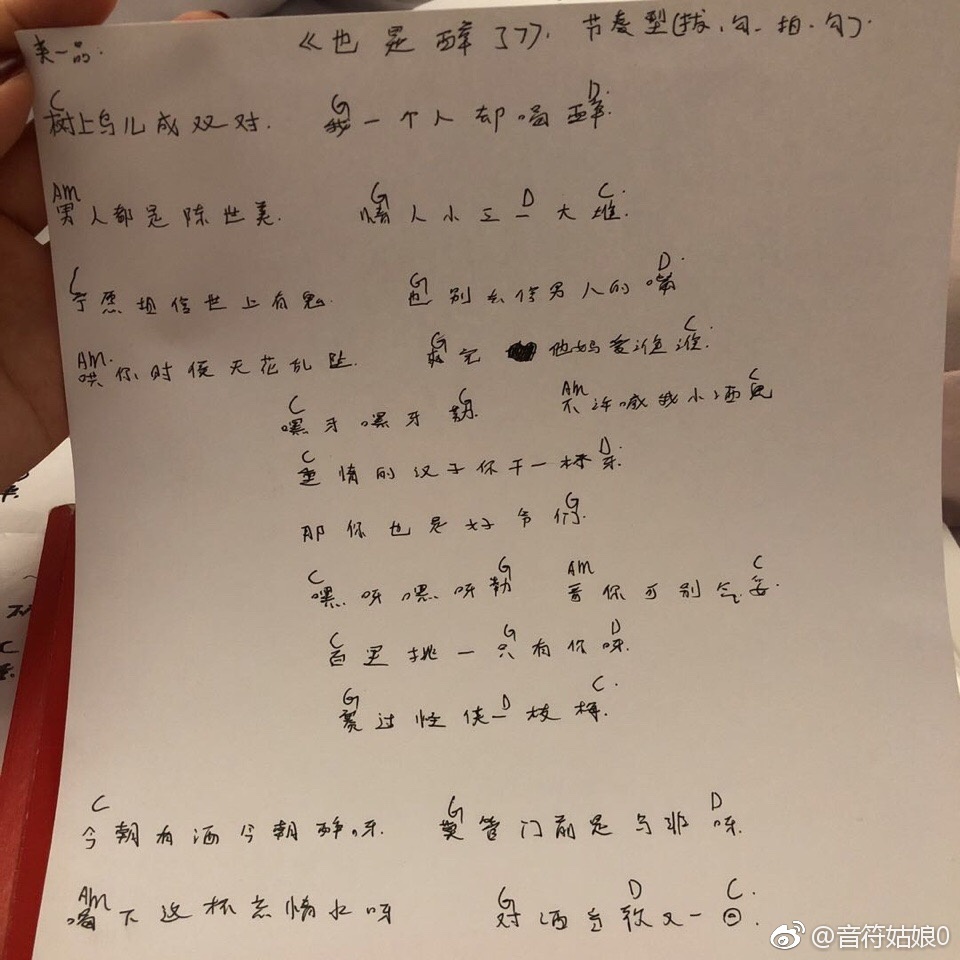 夹一品. 《也是醉了》. 节奏型(拨.勾.拍.勾).
C G D
树上鸟儿成双对. 我一个人却喝醉.
Am G D C
男人都是陈世美. 情人小三一大堆.
C G D
宁愿相信世上有鬼. 也别去信男人的嘴
Am G C
哄你时候天花乱坠. 爽完 他妈爱谁谁.
C G Am C
嘿牙嘿牙勒. 不许喊我小酒鬼
C D
重情的汉子你干一杯牙.
G
那你也是好爷们.
C G Am C
嘿呀嘿呀勒 看你可别气妥.
C G D
百里挑一只有你呀.
G D C
赛过怪侠一枝梅.
C G D
今朝有酒今朝醉呀. 莫管门前是与非呀.
Am G D C
喝下这杯忘情水呀 对酒当歌又一回.
@音符姑娘0